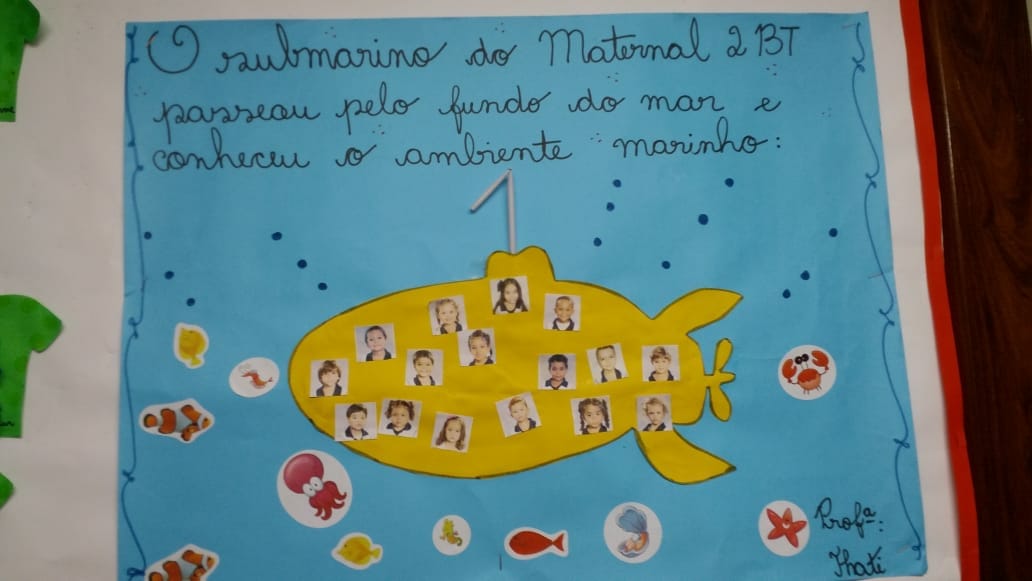 O submarino do Maternal 2 BT
passeou pelo fundo do mar e
conheceu o ambiente marinho:
Profª:
Thati